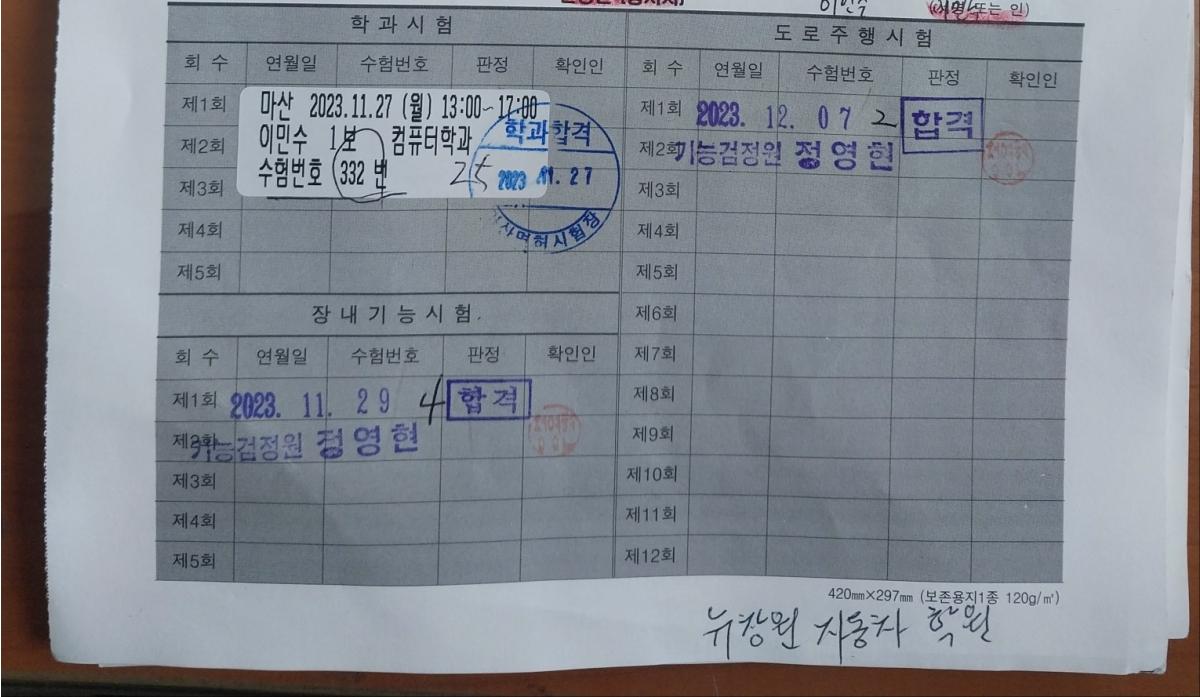 이민수
(서명 또는 인)
학 과 시 험
회 수 연월일 수험번호 판정 확인인
제1회
마산 2023.11.27 (월) 13:00~17:00
이민수 1보 컴퓨터학과
수험번호 332 번
25
학과합격
2023 11.27
면허시험장
제2회
제3회
제4회
제5회
장 내 기 능 시 험
회 수 연월일 수험번호 판정 확인인
제1회 2023. 11. 29 4 합격
제2회 기능검정원 정영현
제3회
제4회
제5회
도 로 주 행 시 험
회 수 연월일 수험번호 판정 확인인
제1회 2023. 12. 07 2 합격
제2회 기능검정원 정영현
제3회
제4회
제5회
제6회
제7회
제8회
제9회
제10회
제11회
제12회
420㎜×297㎜ (보존용지1종 120g/㎡)
뉴창원 자동차 학원